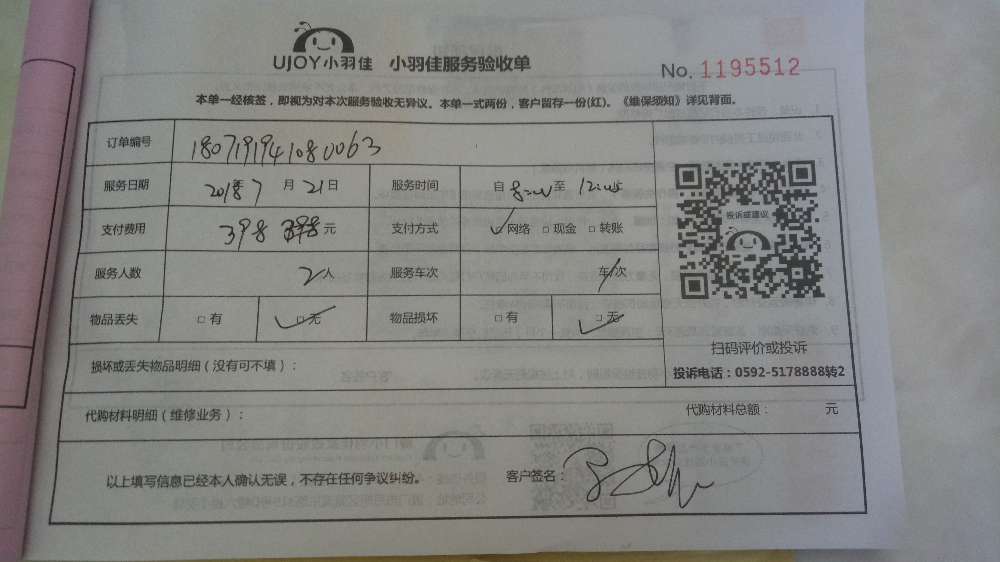 UJOY小羽佳 小羽佳服务验收单
No. 1195512
本单一经核签，即视为对本次服务验收无异议。本单一式两份，客户留存一份(红)。《维保须知》详见背面。
订单编号 1807191941080063
服务日期 2018年7月21日 服务时间 自8:00至12:00
支付费用 398 元 支付方式 ✓网络 □现金 □转账
服务人数 2人 服务车次 车/次
物品丢失 □有 ✓无 物品损坏 □有 ✓无
投诉或建议
扫码评价或投诉
投诉电话：0592-5178888转2
损坏或丢失物品明细（没有可不填）：
代购材料明细（维修业务）： 代购材料总额： 元
以上填写信息已经本人确认无误，不存在任何争议纠纷。 客户签名：